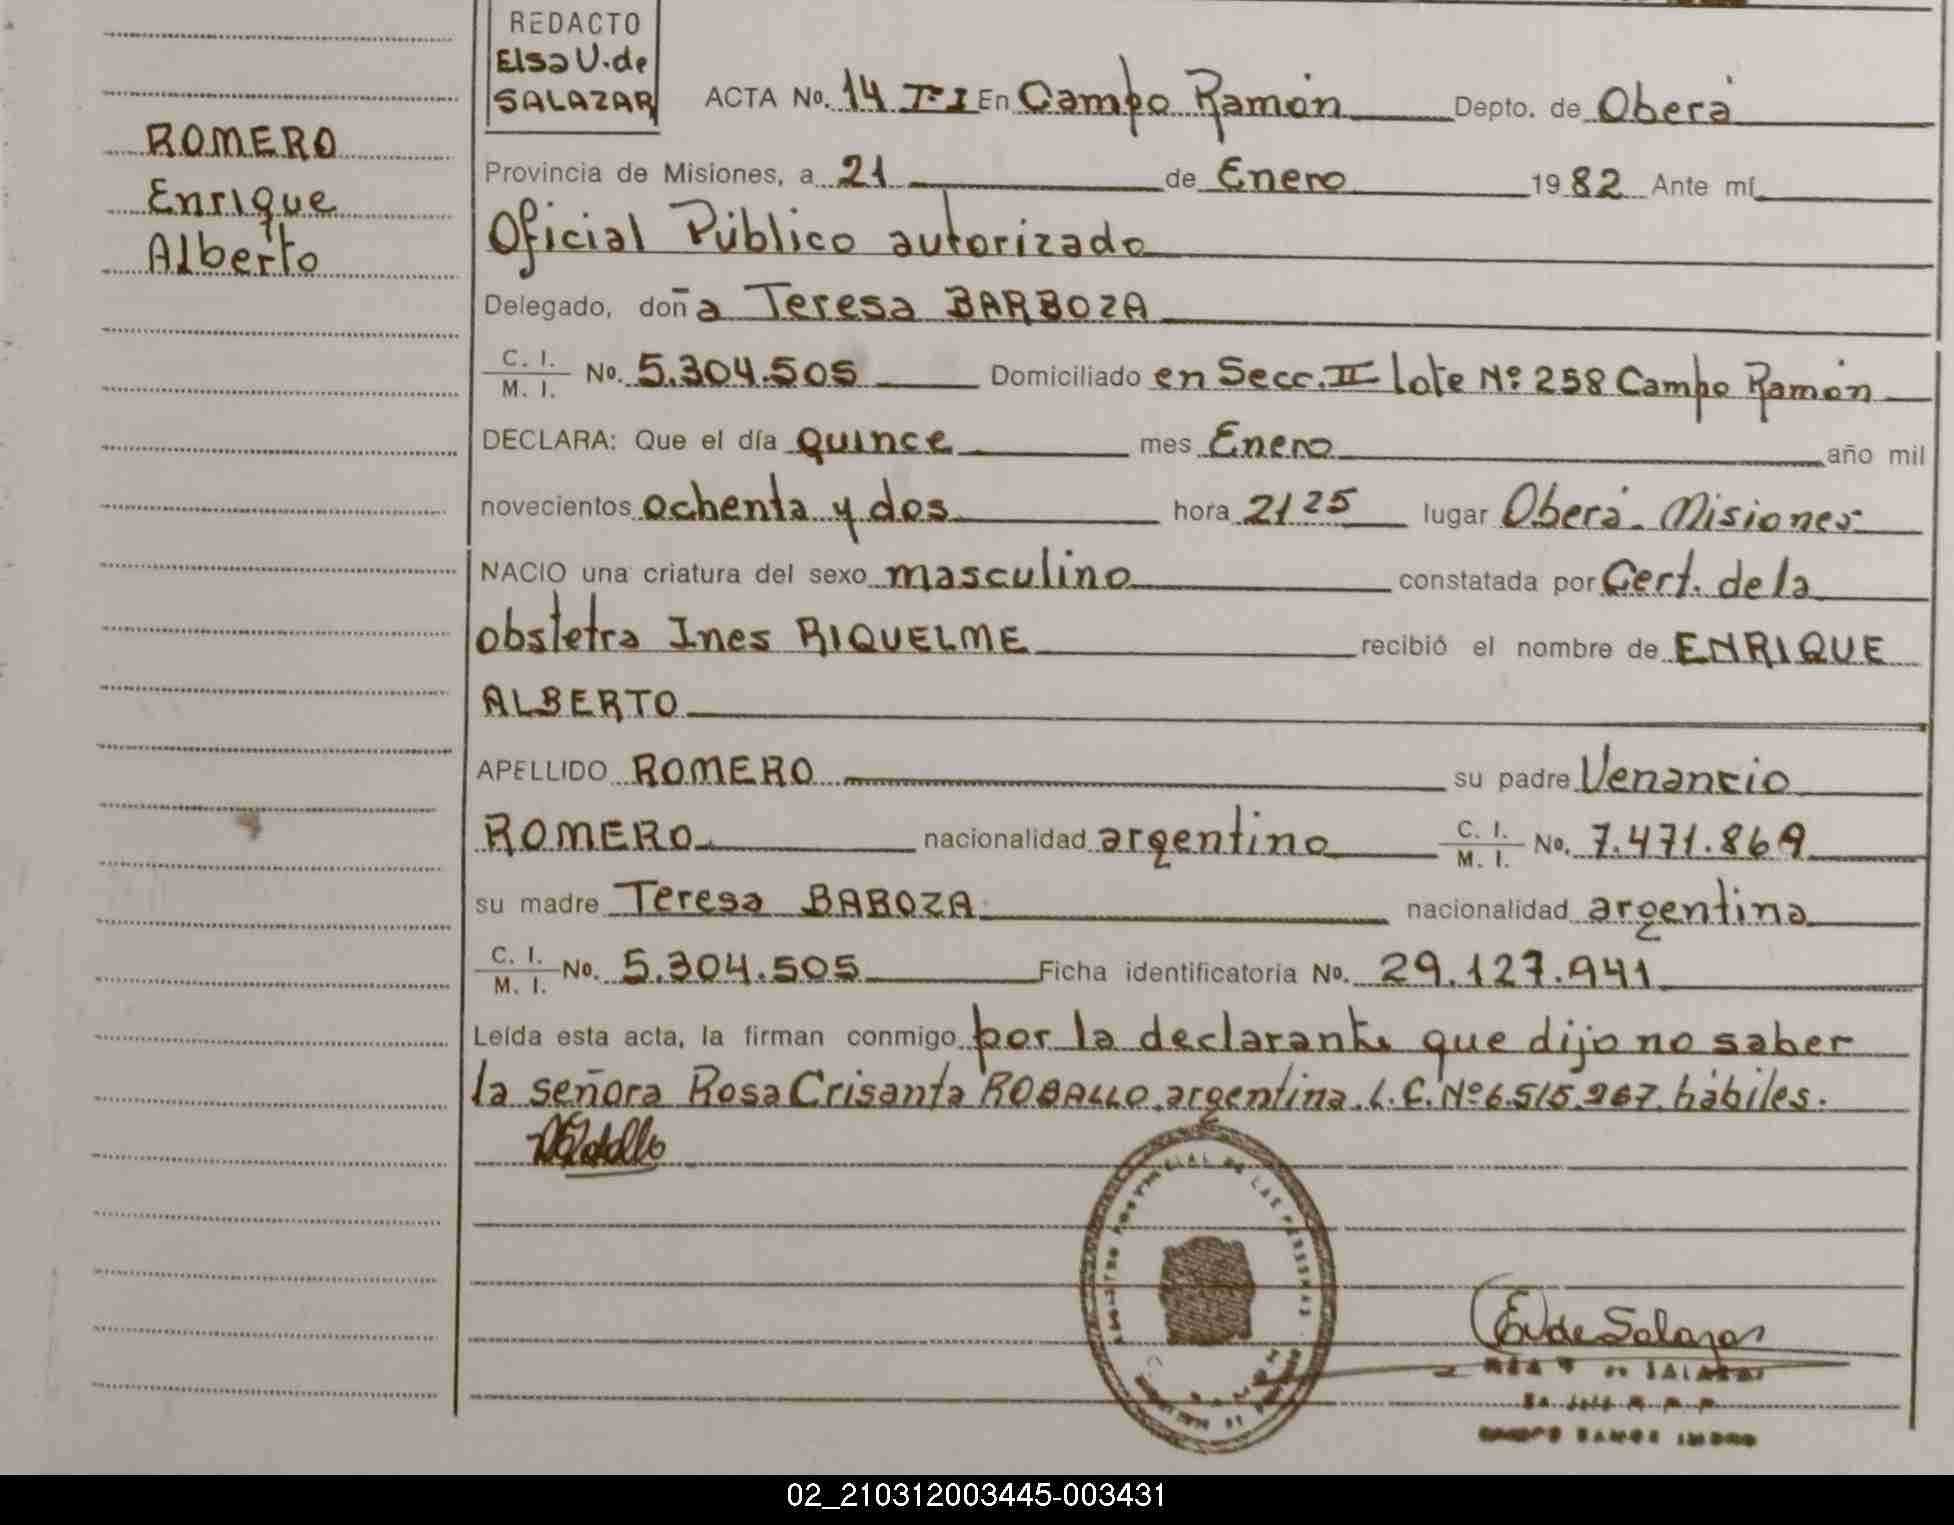 REDACTO
Elsa U. de
SALAZAR
ROMERO
Enrique
Alberto
ACTA No. 14 Tº I En Campo Ramón Depto. de Oberá
Provincia de Misiones, a 21 de Enero 1982 Ante mí
Oficial Público autorizado
Delegado, doña Teresa BARBOZA
C. I. / M. I. No. 5.304.505 Domiciliado en Secc. II lote Nº 258 Campo Ramón
DECLARA: Que el día quince mes Enero año mil
novecientos ochenta y dos hora 21 25 lugar Oberá. Misiones
NACIO una criatura del sexo masculino constatada por Cert. de la
obstetra Ines RIQUELME recibió el nombre de ENRIQUE
ALBERTO
APELLIDO ROMERO su padre Venancio
ROMERO nacionalidad argentino C. I. / M. I. No. 7.471.869
su madre Teresa BABOZA nacionalidad argentina
C. I. / M. I. No. 5.304.505 Ficha identificatoria No. 29.127.941
Leída esta acta, la firman conmigo por la declarante que dijo no saber
la señora Rosa Crisanta ROBALLO. argentina. L. C. Nº 6.515.967. hábiles.
PROVINCIAL DE LAS PERSONAS
E U de Salazar
DE SALAZAR
02_210312003445-003431